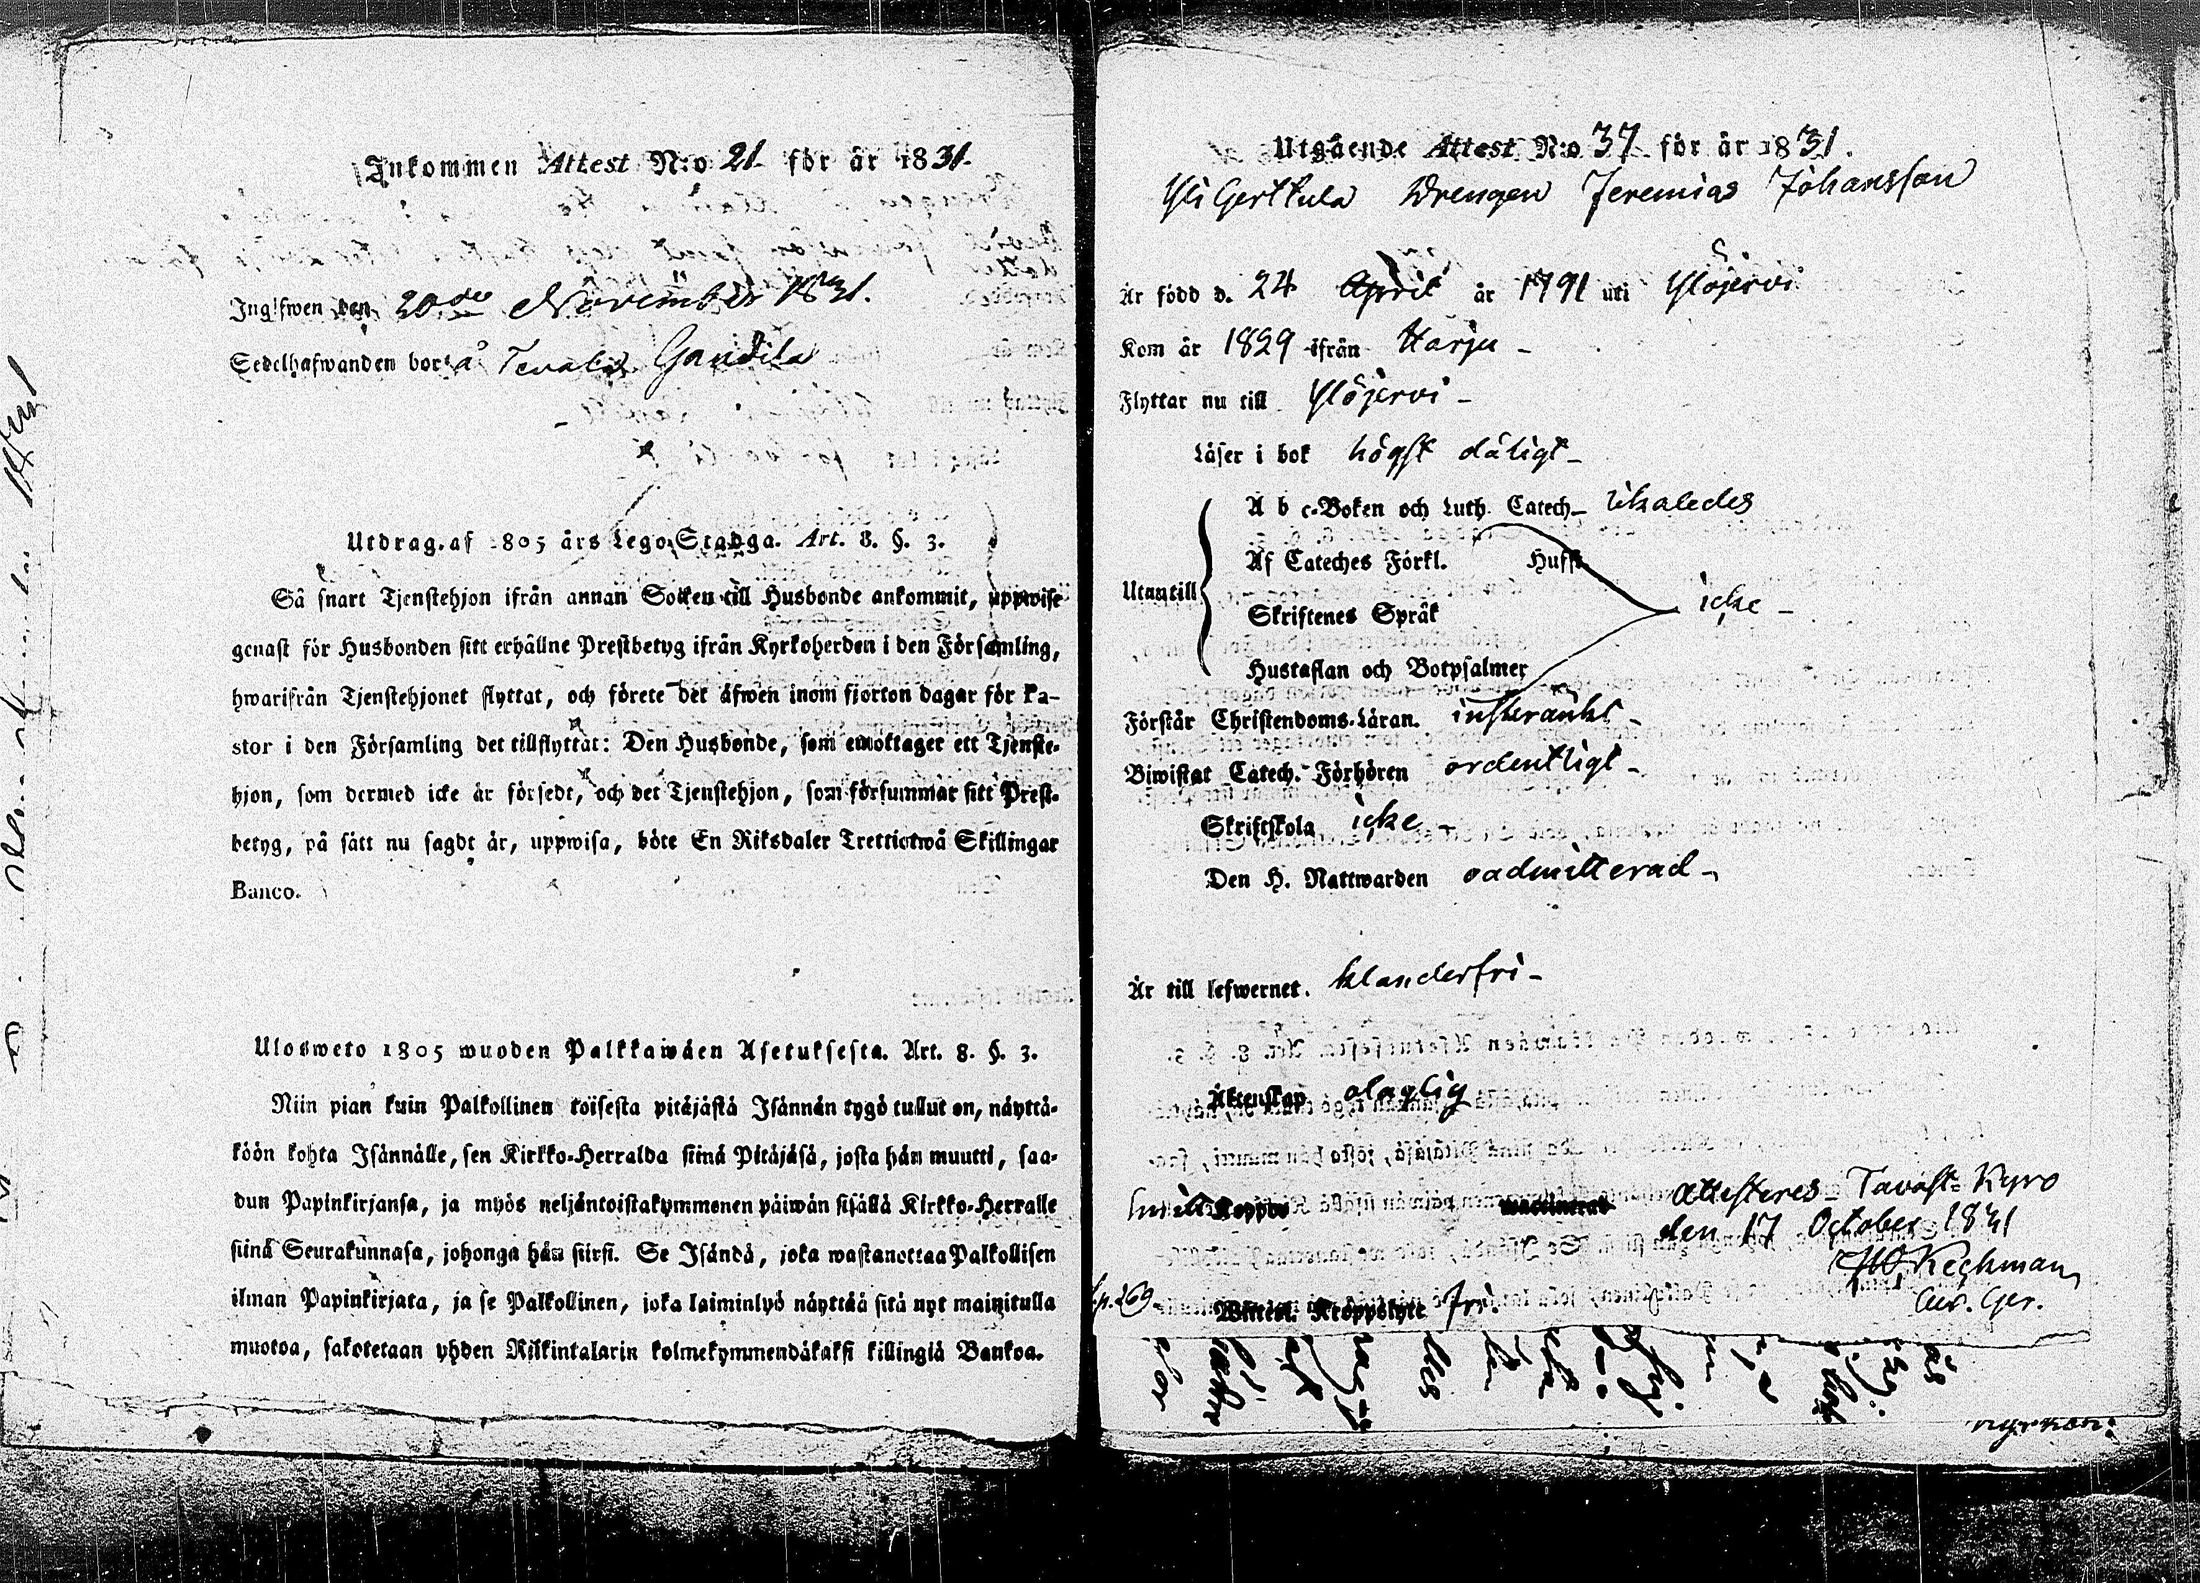 Inkommen Attest N:o 21 för år 1831.
Ingifwen den 20de November 1831.
Sedelhafwanden bor å Tevala Gandila
Utdrag af 1805 års Lego-Stadga. Art. 8. §. 3.
Så snart Tjenstehjon ifrån annan Socken till Husbonde ankommit, uppwise
genast för Husbonden sitt erhållne Prestbetyg ifrån Kyrkoherden i den Församling,
hwarifrån Tjenstehjonet flyttat, och förete det äfwen inom fjorton dagar för Pa-
stor i den Församling det tillflyttat: Den Husbonde, som emottager ett Tjenste-
hjon, som dermed icke är försedt, och det Tjenstehjon, som försummar sitt Prest-
betyg, på sätt nu sagdt är, uppwisa, böte En Riksdaler Trettiotwå Skillingar
Banco.
Ulosweto 1805 wuoden Palkkawäen Asetuksesta. Art. 8. §. 3.
Niin pian kuin Palkollinen toisesta pitäjästä Isännän tygö tullut on, näyttä-
köön kohta Isännälle, sen Kirkko-Herralda siinä Pitäjäsä, josta hän muutti, saa-
dun Papinkirjansa, ja myös neljäntoistakymmenen päiwän sisällä Kirkko-Herralle
siinä Seurakunnasa, johonga hän siirsi. Se Isändä, joka wastanottaa Palkollisen
ilman Papinkirjata, ja se Palkollinen, joka laiminlyö näyttää sitä nyt mainitulla
muotoa, sakotetaan yhden Riikintalarin kolmekymmendäkaksi killingiä Bankoa.
Utgående Attest N:o 37 för år 1831.
Yli Gerttula Drengen Jeremias Johansson
Är född d. 24 April år 1791 uti Ylöjervi
Kom år 1829 ifrån Harju -
Flyttar nu till Ylöjervi -
Läser i bok högst dåligt -
A b c-Boken och Luth. Catech. - likaledes
Af Cateches Förkl. Huff.
Utantill
Skriftenes Språk
icke -
Hustaflan och Botpsalmer
Förstår Christendoms-Läran. inskränkt -
Biwistat Catech. Förhören ordentligt -
Skriftskola icke
Den H. Nattwarden oadmitterad -
Är till lefwernet. klanderfri -
Äktenskap olaglig
Attesteres Tavast-Kyro
Koppor
den 17 October 1831
Kechman
p. 269
Kroppslyte Fri